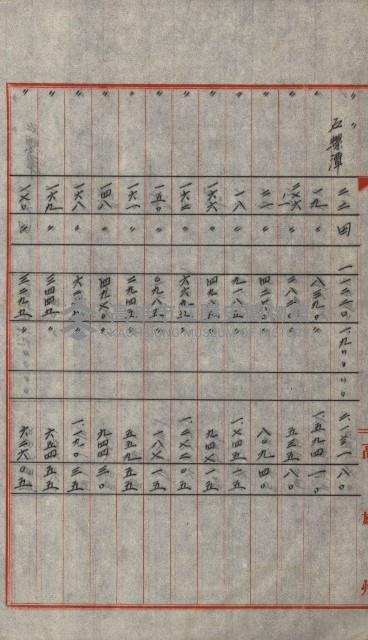 〃 石螺潭 二二 田 一.一二二〇 .一九〇〇〇〇 二.一三一 八〇
〃 一九一 〃 八三九〇 〃 一.五九四 一〇
〃 〃 二八二〇 〃 五三五 八〇
〃 〃 四二六〇 〃 八〇九 四〇
〃 一八 〃 九一八五 〃 一.七四五 一五
〃 一六六 〃 四九八五 〃 九四七 一五
〃 一六二 〃 六六九五 〃 一.二七二 〇五
〃 一五〇 〃 〇九八五 〃 一八七 一五
〃 一六一 〃 二九四五 〃 五五九 五五
〃 一四八 〃 四九七〇 〃 九四四 三〇
〃 一六八 〃 六二六五 〃 一.一九〇 三五
〃 一六九 〃 三四四五 〃 六五四 五五
〃 一七〇 〃 三二九五 〃 六二六 〇五
高雄州